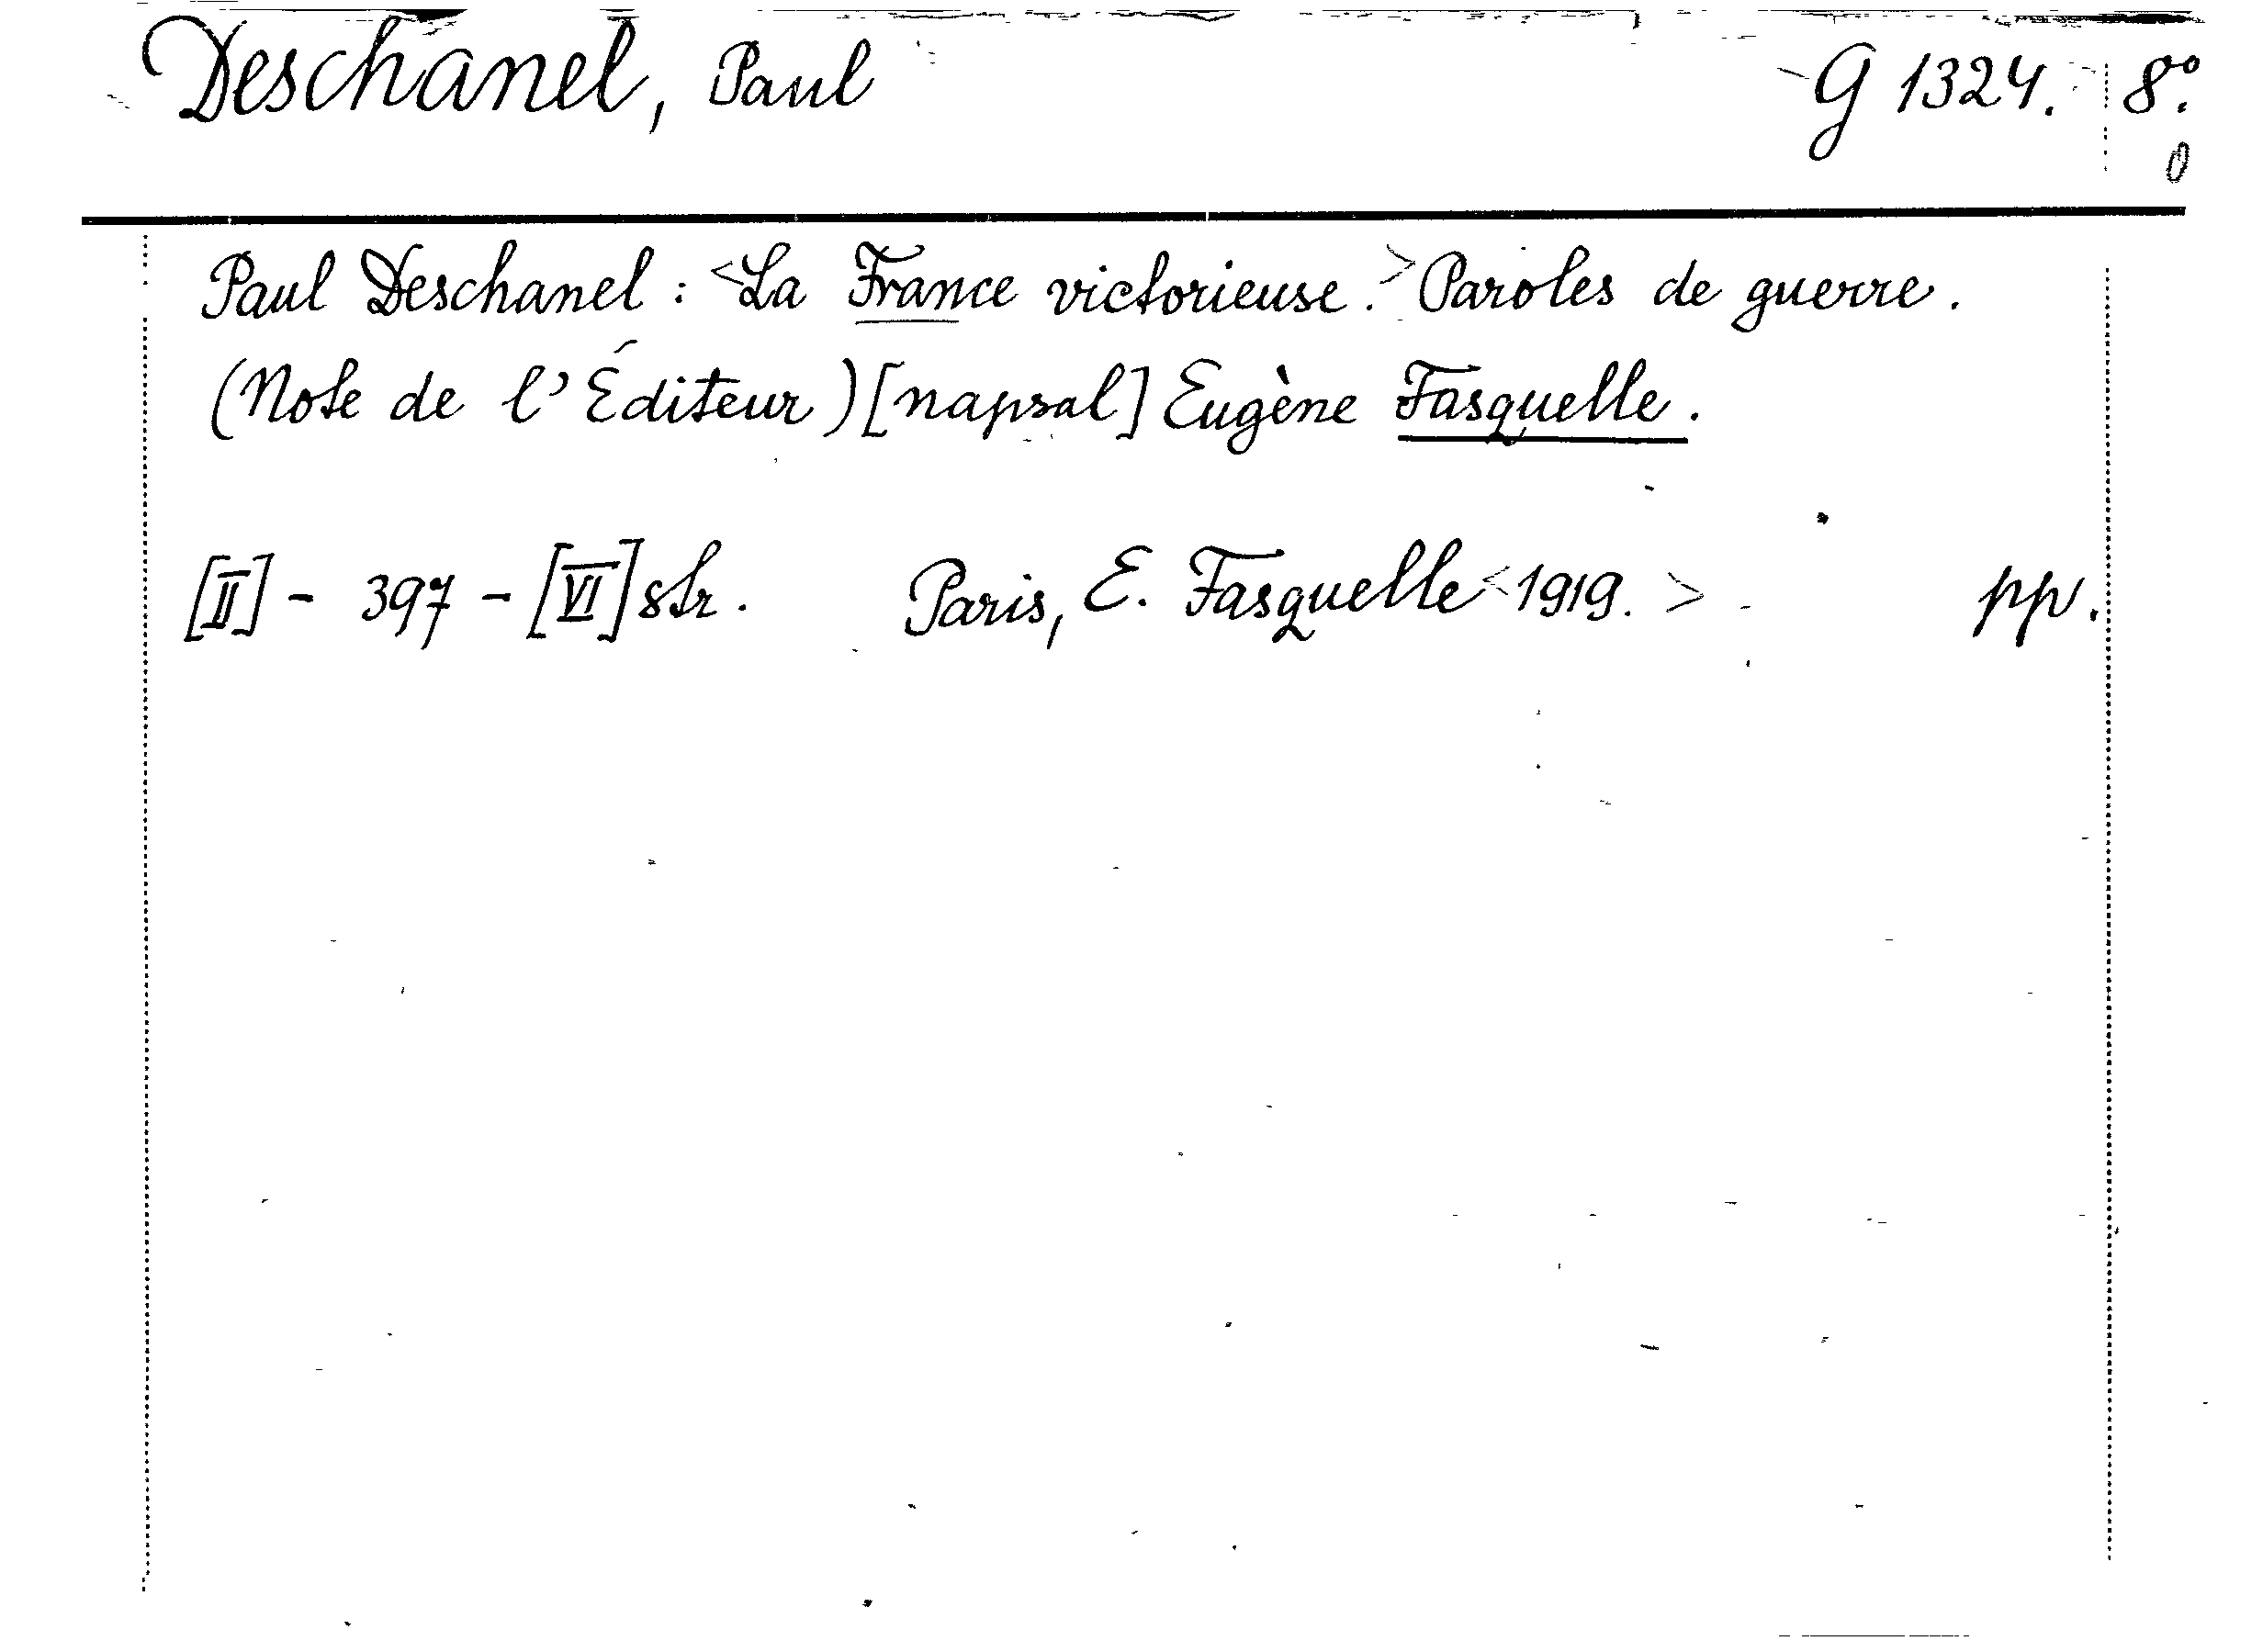 Deschanel, Paul G 1324. 8°.
0
Paul Deschanel: <La France victorieuse.> Paroles de guerre.
(Note de l'Éditeur) [napsal] Eugène Fasquelle.
[II] - 397 - [VI] str. Paris, E. Fasquelle <1919.> pp.